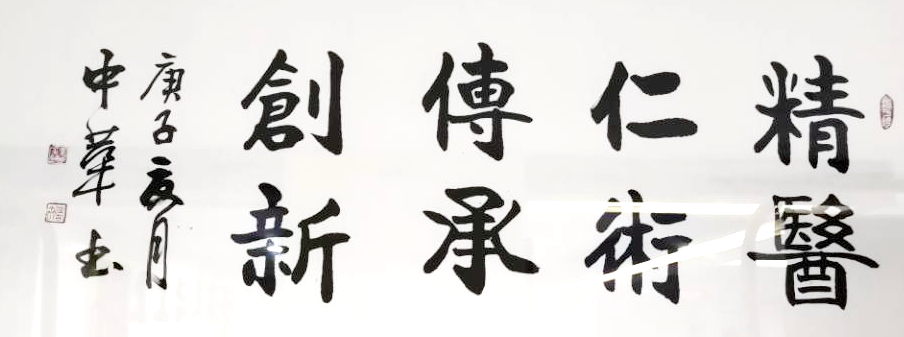 精醫
仁術
傳承
創新
庚子夏月
中華书